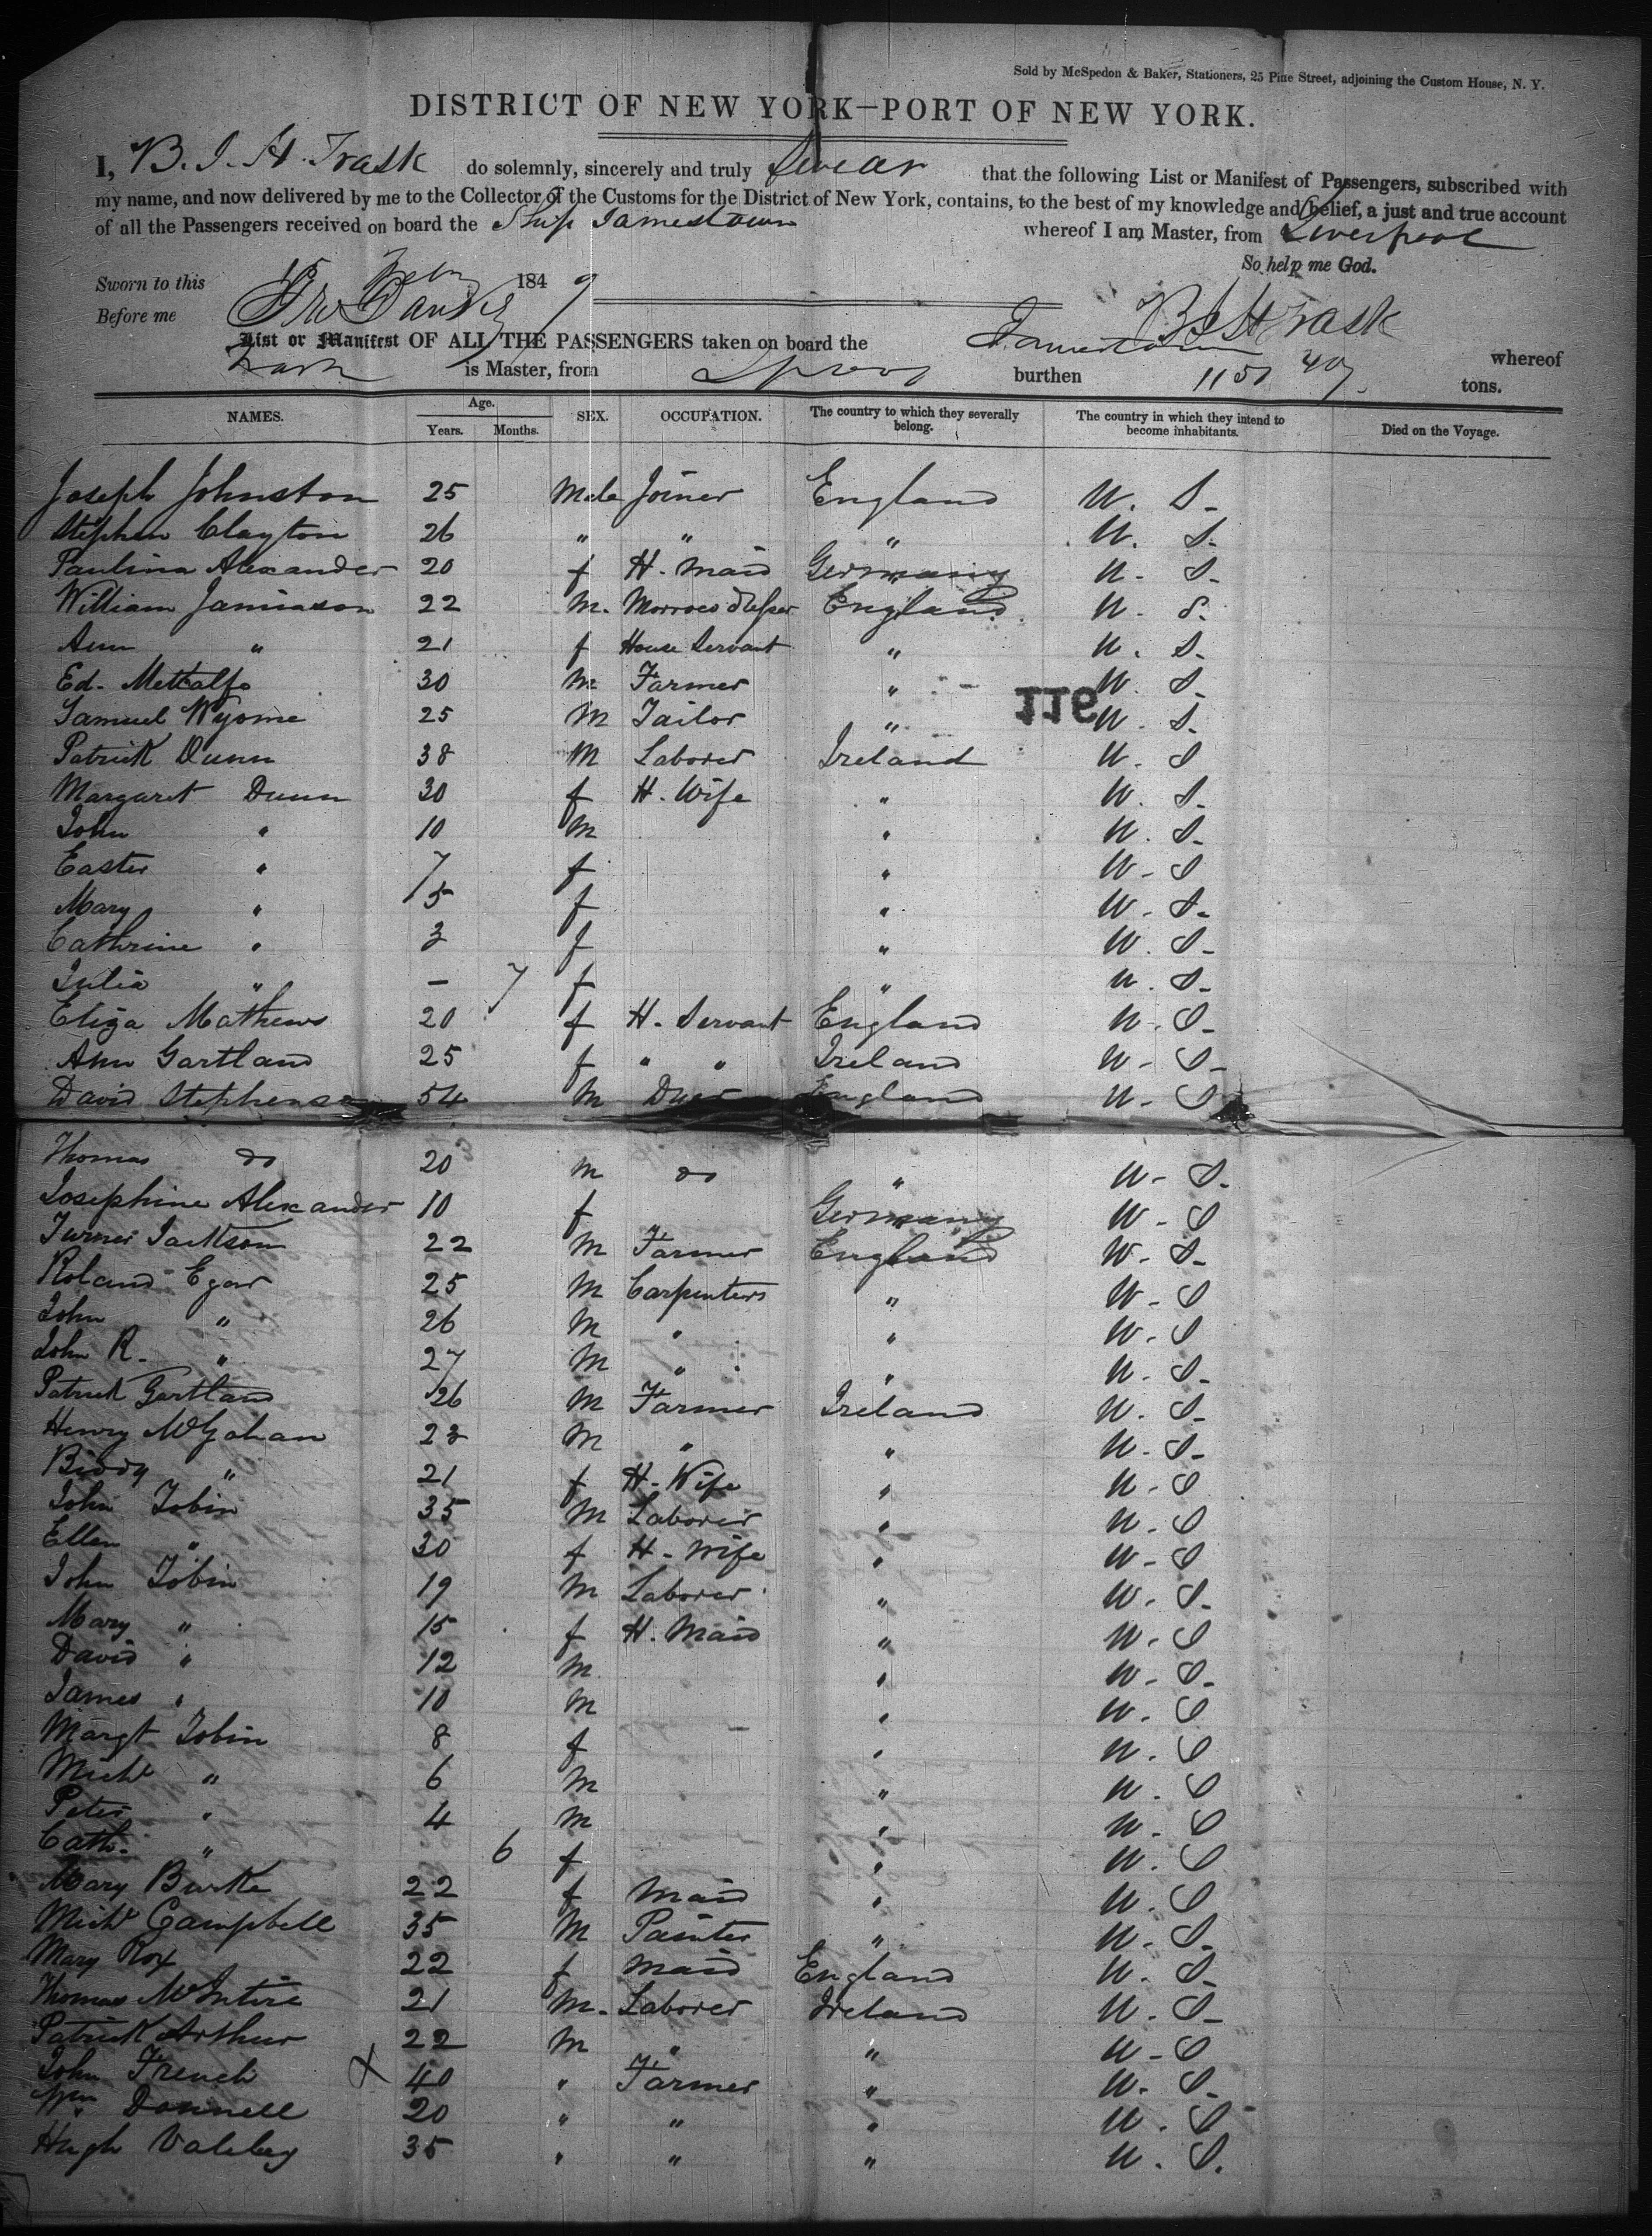 Sold by McSpedon & Baker, Stationers, 25 Pine Street, adjoining the Custom House, N. Y.
DISTRICT OF NEW YORK—PORT OF NEW YORK.
I, B. J. H. Trask do solemnly, sincerely and truly swear that the following List or Manifest of Passengers, subscribed with
my name, and now delivered by me to the Collector of the Customs for the District of New York, contains, to the best of my knowledge and belief, a just and true account
of all the Passengers received on board the Ship Jamestown whereof I am Master, from Liverpool
So help me God.
Sworn to this 15 Feby 1849
Before me
B J H Trask
List or Manifest OF ALL THE PASSENGERS taken on board the Jamestown whereof
Trask is Master, from Lpool burthen 1151 tons.
NAMES. Age. Years. Months. SEX. OCCUPATION. The country to which they severally belong. The country in which they intend to become inhabitants. Died on the Voyage.
Joseph Johnston 25 Male Joiner England U. S.
Stephen Clayton 26 " " " U. S.
Paulina Alexander 20 f H. Maid Germany U. S.
William Jamieson 22 M. Morroco dresser England U. S.
Ann " 21 f House Servant " U. S.
Ed. Metcalfe 30 M Farmer " U. S.
116
Samuel Wyome 25 M Tailor " U. S.
Patrick Dunn 38 M Laborer Ireland U. S
Margaret Dunn 30 f H. Wife " U. S.
John " 10 M " U. S.
Easter " 7 f " U. S
Mary " 5 f " U. S.
Cathrine " 3 f " U. S.
Julia " – 7 f " U. S.
Eliza Mathews 20 f H. Servant England U. S.
Ann Gartland 25 f " " Ireland U. S.
David Stephenson 54 M Dyer England U. S
Thomas do 20 M do " U. S.
Josephine Alexander 10 f Germany U. S
Turner Jackson 22 M Farmer England U. S.
Roland Egar 25 M Carpenters " U. S
John " 26 M " " U. S
John R. " 27 M " " U. S.
Patrick Gartland 26 M Farmer Ireland U. S.
Henry McGahan 23 M " " U. S.
Biddy " 21 f H. Wife " U. S
John Tobin 35 M Laborer " U. S
Ellen " 30 f H. Wife " U. S
John Tobin 19 M Laborer " U. S.
Mary " 15 f H. Maid " U. S
David " 12 M " U. S.
James " 10 M " U. S
Margt Tobin 8 f " U. S
Michl " 6 M " U. S
Peter " 4 M " U. S
Cath. " 6 f " U. S
Mary Burke 22 f Maid " U. S
Michl Campbell 35 M Painter " U. S.
Mary Roy 22 f Maid England U. S.
Thomas McIntire 21 M. Laborer Ireland U. S.
Patrick Arthur 22 M " " U. S
John French X 40 " Farmer " U. S.
Wm Donnell 20 " " " U. S
Hugh 35 " " " U. S.